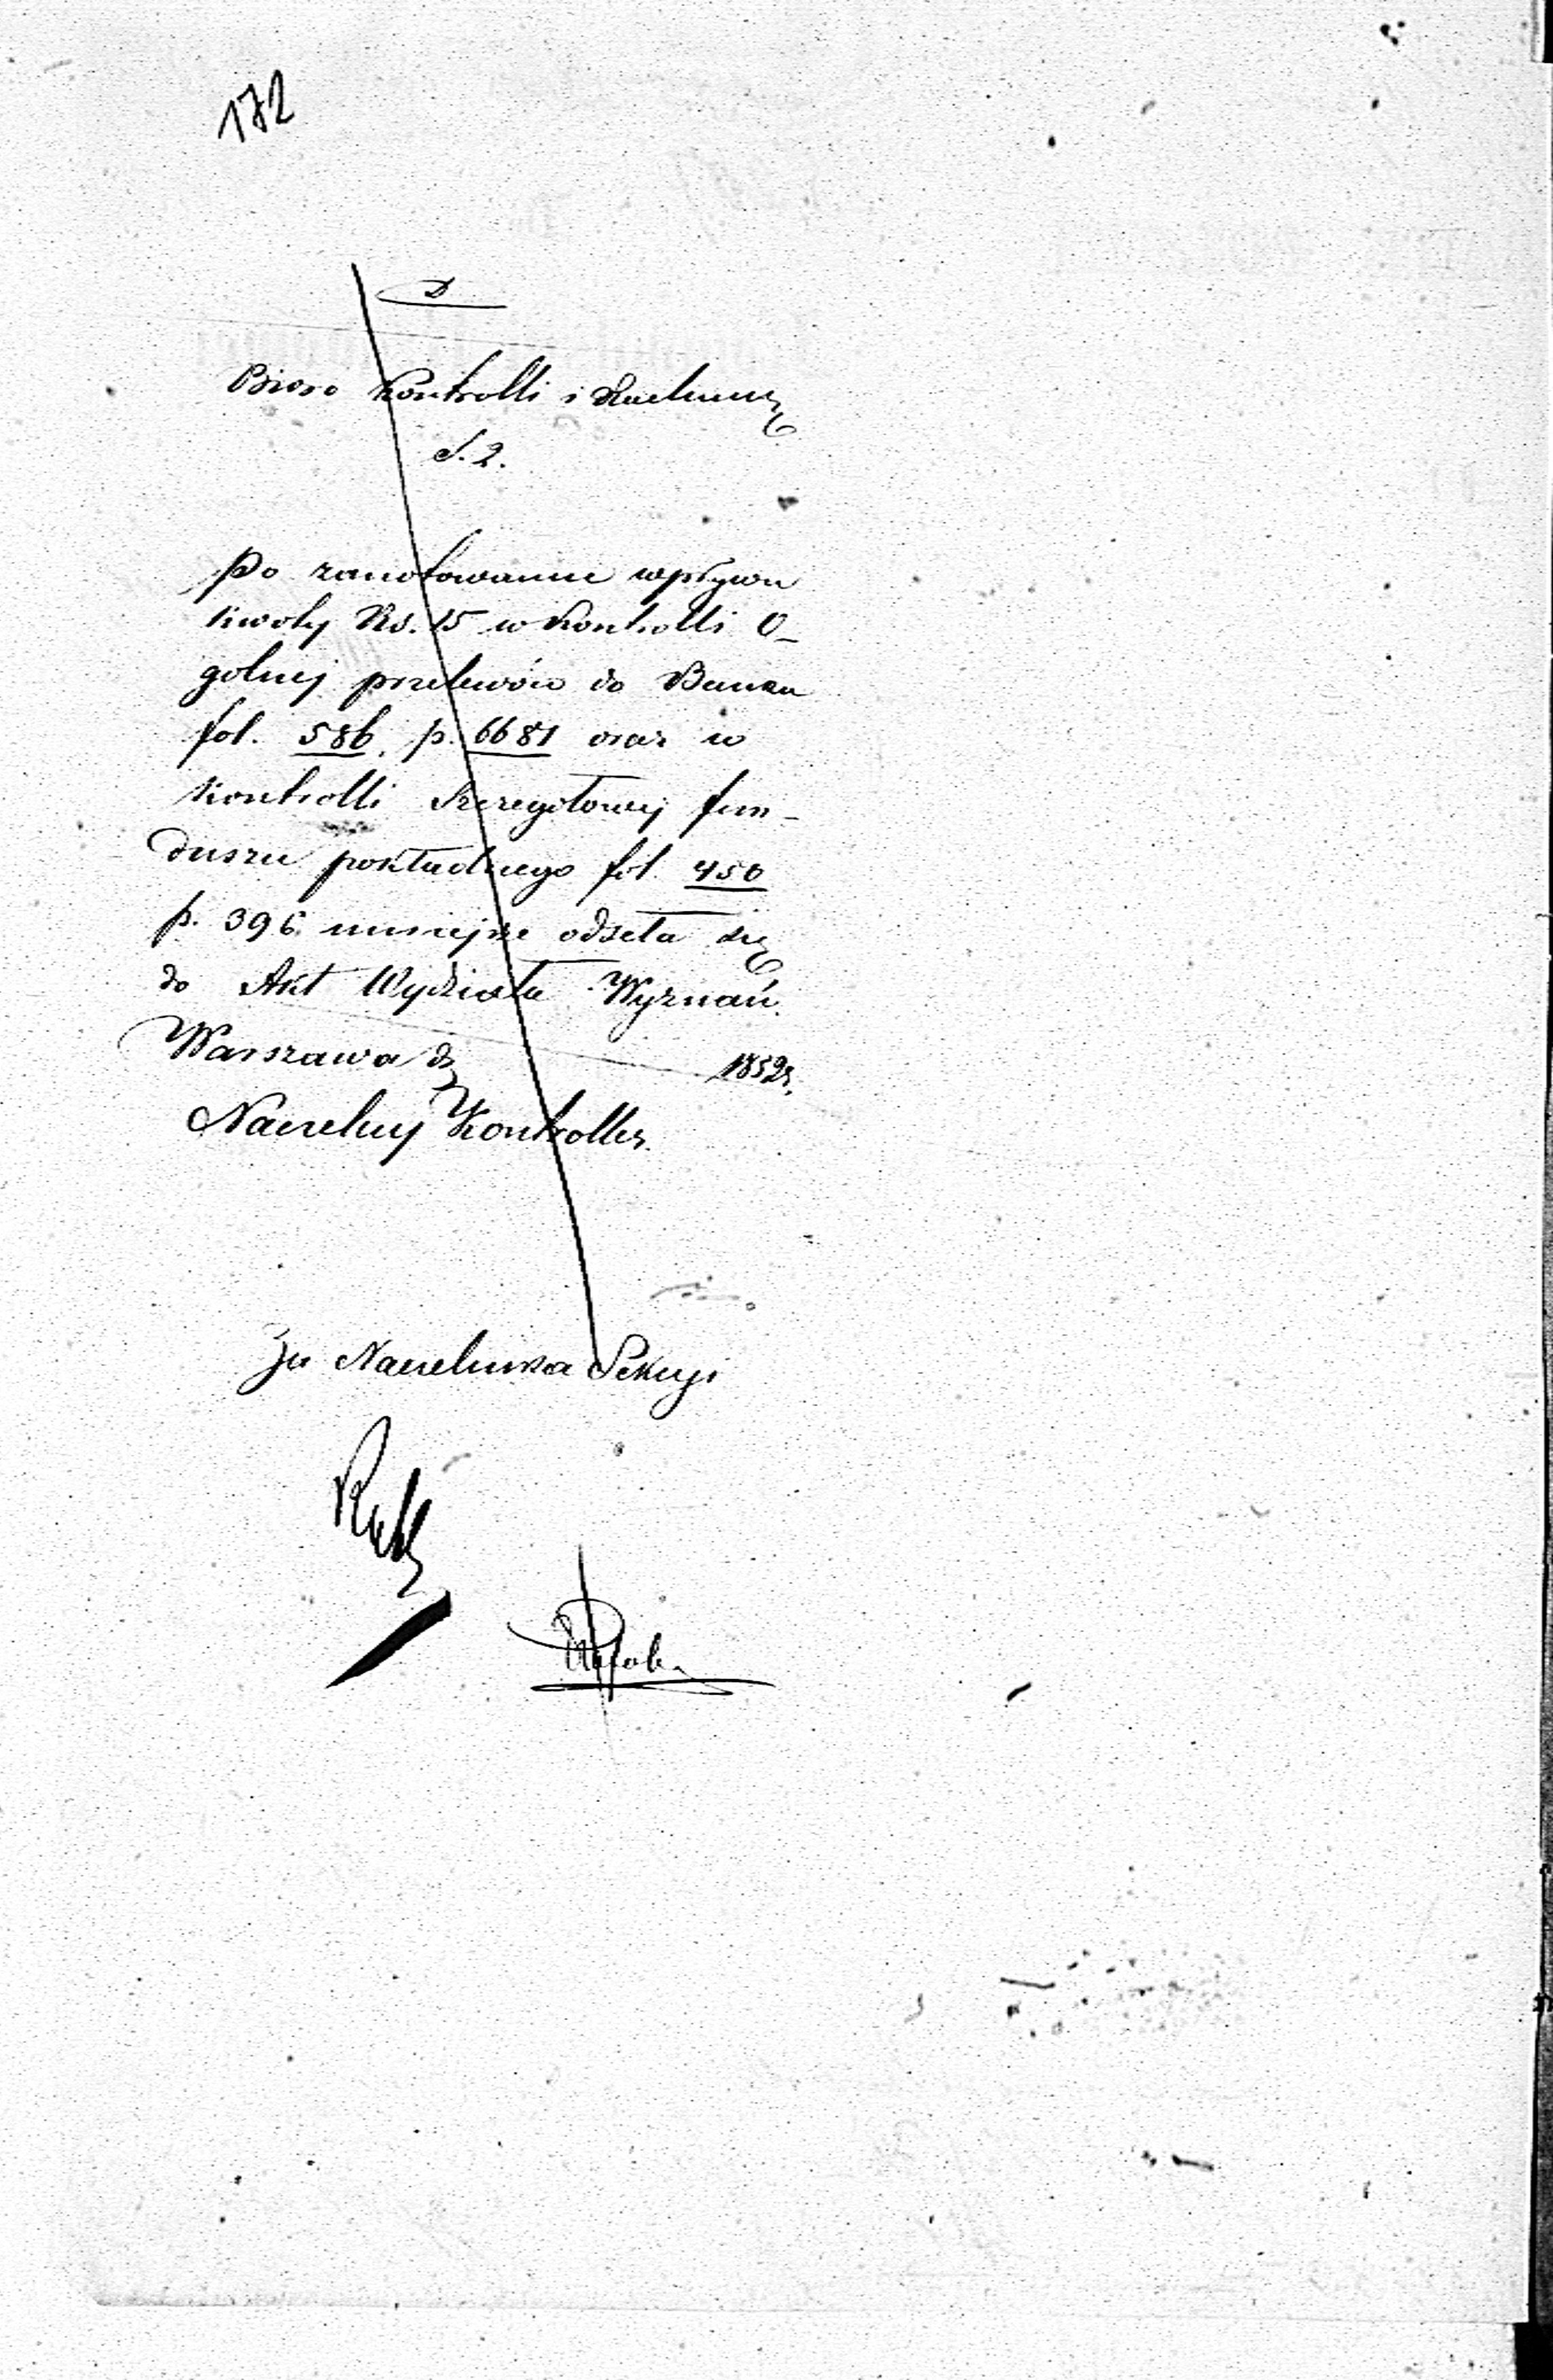 172
D
Biuro Kontrolli i Rachuny
S. 2.
Po zanotowaniu wpływu
kwoty Rs. 15 w Kontrolli O_
golnej przelewów do Banku
fol. 586. p. 6681 oraz w
Kontrolli Szczegołowej fun_
duszu pokładnego fol. 450
p. 396. niniejsze odseła się
do Akt Wydziału Wyznań.
Warszawa d. 1852 r.
Naczelny Kontroller.
Za Naczelnika Sekcyi